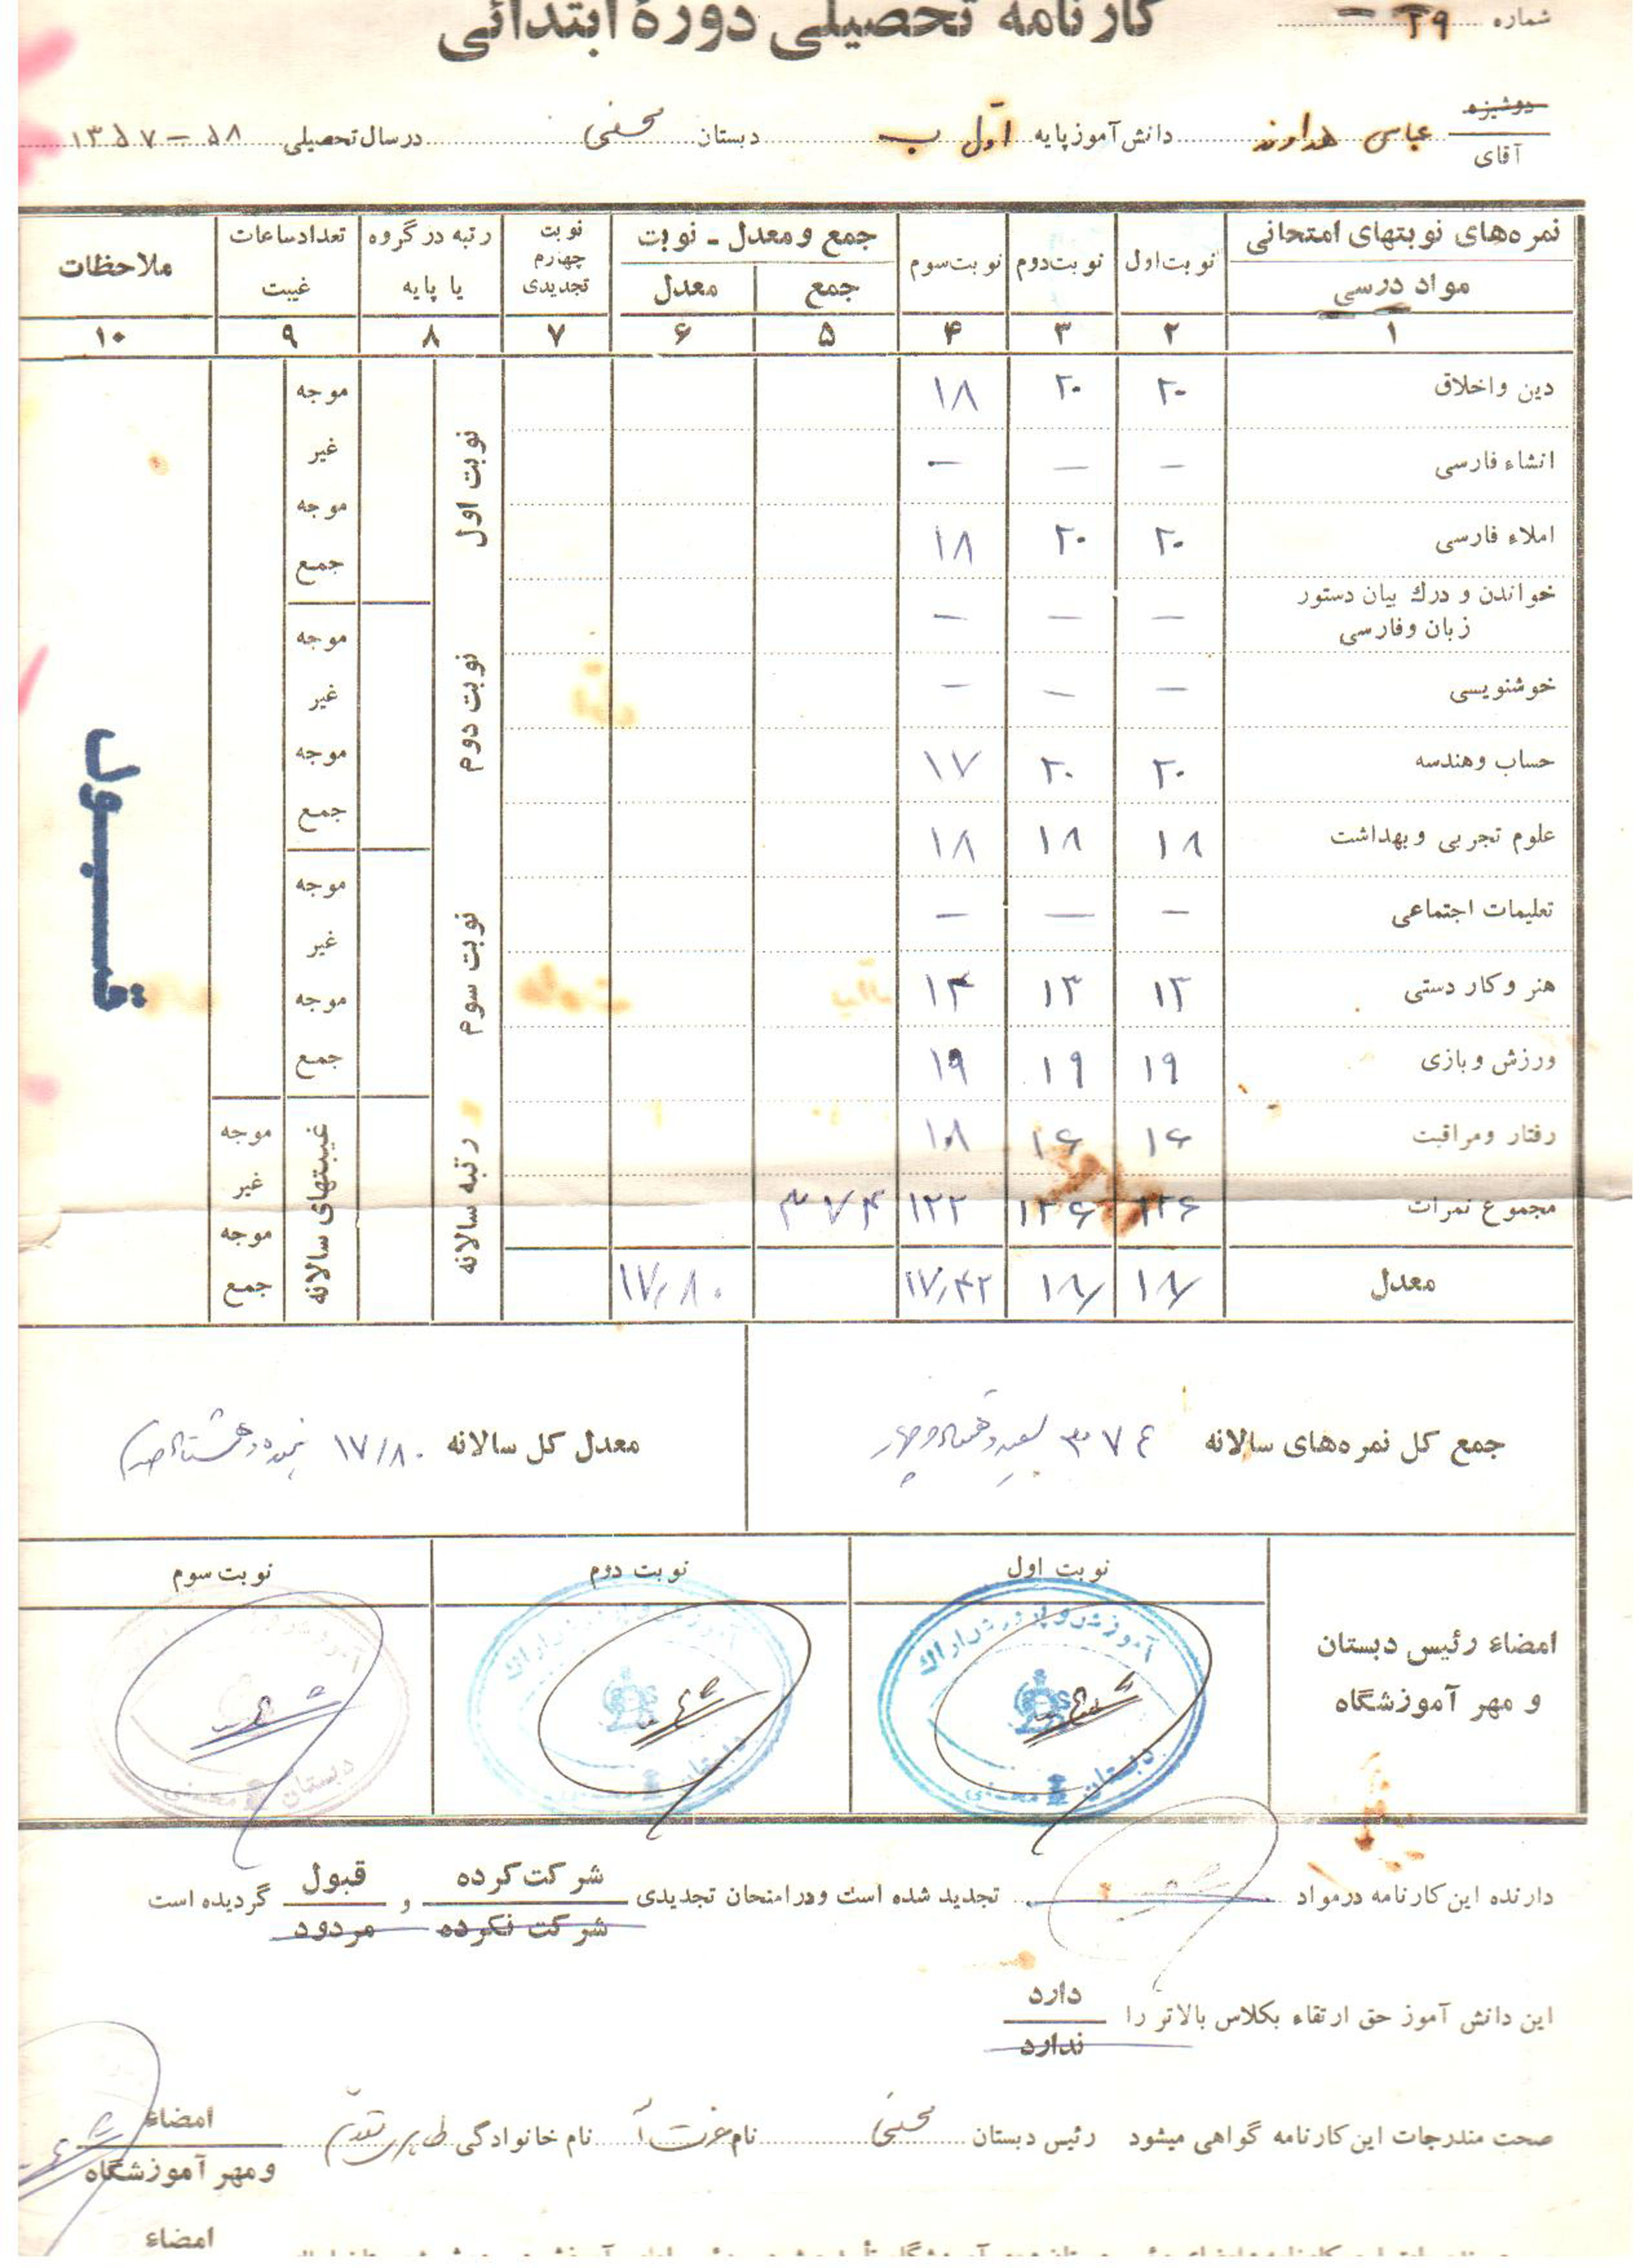 شماره ۲۹
کارنامه تحصیلی دورهٔ ابتدائی
دوشیزه
آقای عباس هداوند دانش آموز پایه اوّل ب دبستان محسنی در سال تحصیلی ۵۸ – ۱۳۵۷
نمره‌های نوبتهای امتحانی نوبت اول نوبت دوم نوبت سوم جمع و معدل ـ نوبت نوبت چهارم تجدیدی رتبه در گروه یا پایه تعداد ساعات غیبت ملاحظات
مواد درسی جمع معدل
۱ ۲ ۳ ۴ ۵ ۶ ۷ ۸ ۹ ۱۰
دین و اخلاق ۲۰ ۲۰ ۱۸
انشاء فارسی – – –
املاء فارسی ۲۰ ۲۰ ۱۸
خواندن و درك بیان دستور
زبان وفارسی – – –
خوشنویسی – – –
حساب وهندسه ۲۰ ۲۰ ۱۷
علوم تجربی و بهداشت ۱۸ ۱۸ ۱۸
تعلیمات اجتماعی – – –
هنر و کار دستی ۱۳ ۱۳ ۱۴
ورزش و بازی ۱۹ ۱۹ ۱۹
رفتار ومراقبت ۱۶ ۱۶ ۱۸
مجموع نمرات ۱۲۶ ۱۲۶ ۱۲۲ ۳۷۴
معدل ۱۸/ ۱۸/ ۱۷/۴۲ ۱۷/۸۰
نوبت اول
موجه
غیر
موجه
جمع
نوبت دوم
موجه
غیر
موجه
جمع
نوبت سوم
موجه
غیر
موجه
جمع
رتبه سالانه
غیبتهای سالانه
موجه
غیر
موجه
جمع
قبول
جمع کل نمره‌های سالانه ۳۷۴ سیصد و هفتاد و چهار
معدل کل سالانه ۱۷/۸۰ هفده و هشتاد صدم
امضاء رئیس دبستان
و مهر آموزشگاه
نوبت اول نوبت دوم نوبت سوم
آموزش و پرورش اراك
دبستان محسنی
آموزش و پرورش اراك
دبستان محسنی
دبستان محسنی
دارنده این کارنامه درمواد تجدید شده است ودر امتحان تجدیدی شرکت کرده و قبول گردیده است
شرکت نکرده مردود
این دانش آموز حق ارتقاء بکلاس بالاتر را دارد
ندارد
صحت مندرجات این کارنامه گواهی میشود رئیس دبستان محسنی نام عزت آ نام خانوادگی طاهری مقدم امضاء
و مهر آموزشگاه
امضاء